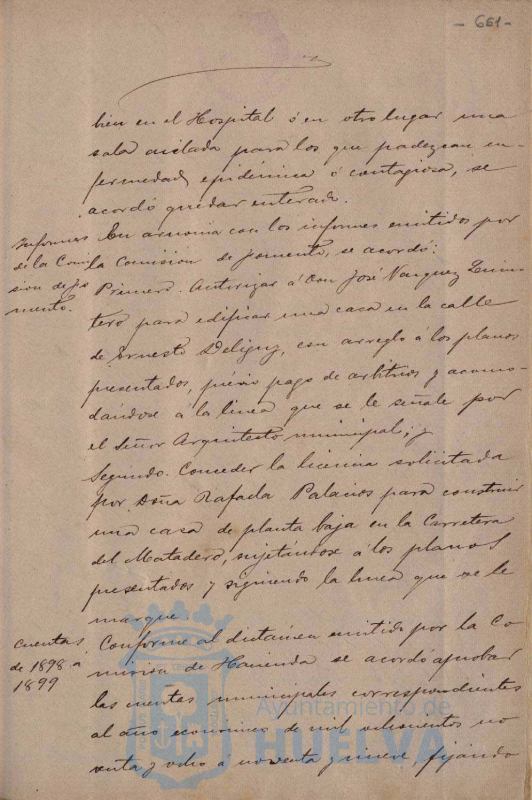 - 661 -
bien en el Hospital ó en otro lugar una
sala aislada para los que padezcan en-
fermedad epidémica ó contagiosa, se
acordó quedar enterado.
Informes
de la Comi
sion de fo
mento.
En armonia con los informes emitidos por
la Comision de fomento, se acordó:
Primero. Autorizar á Don José Vazquez Quin
tero para edificar una casa en la calle
de Ernesto Deligny, con arreglo á los planos
presentados, prévio pago de arbitrios y acomo-
dándose á la linea que se le señale por
el Señor Arquitecto municipal; y
Segundo. Conceder la licencia solicitada
por Doña Rafaela Palacios para construir
una casa de planta baja en la Carretera
del Matadero, sujetándose á los planos
presentados y siguiendo la linea que se le
marque.
Cuentas
de 1898 a
1899
Conforme al dictámen emitido por la Co
mision de Hacienda se acordó aprobar
las cuentas municipales correspondientes
al año económico de mil ochocientos no
venta y ocho á noventa y nueve, fijando
Ayuntamiento de
HUELVA